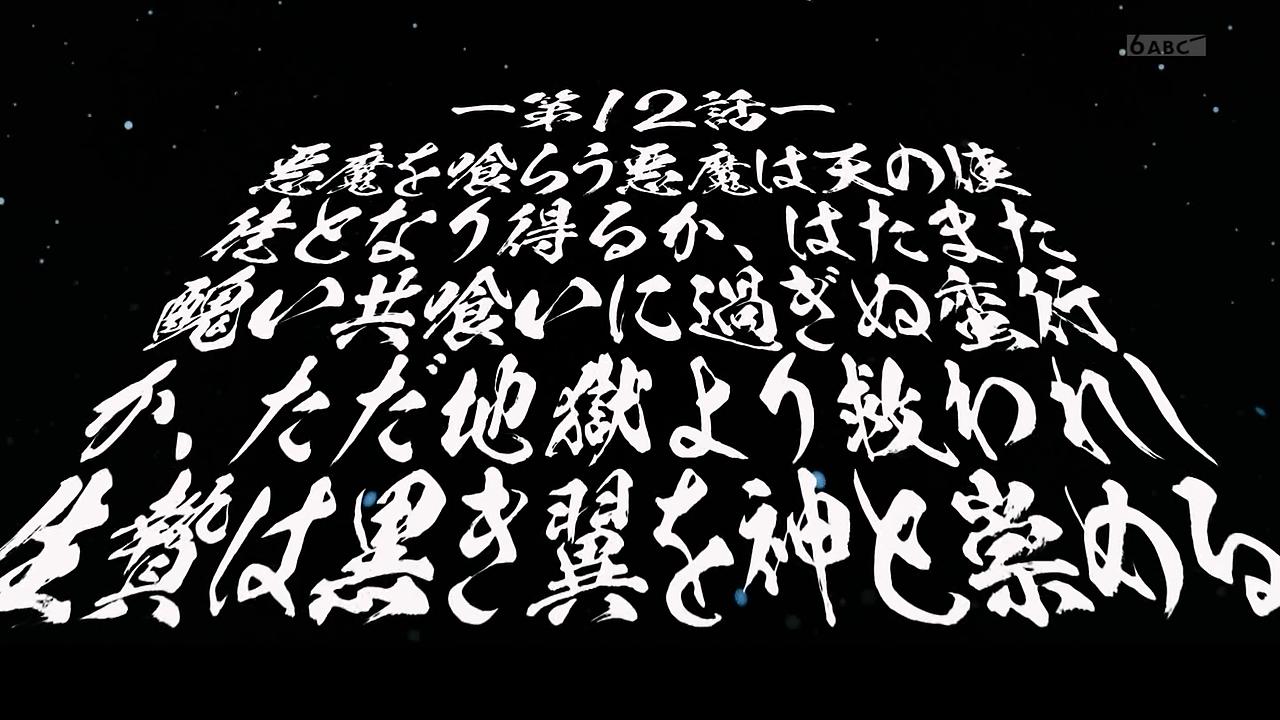 6ABC
ー第12話ー
悪魔を喰らう悪魔は天の使
徒となり得るか、はたまた
醜い共喰いに過ぎぬ蛮行
か、ただ地獄より救われし
生贄は黒き翼を神と崇める